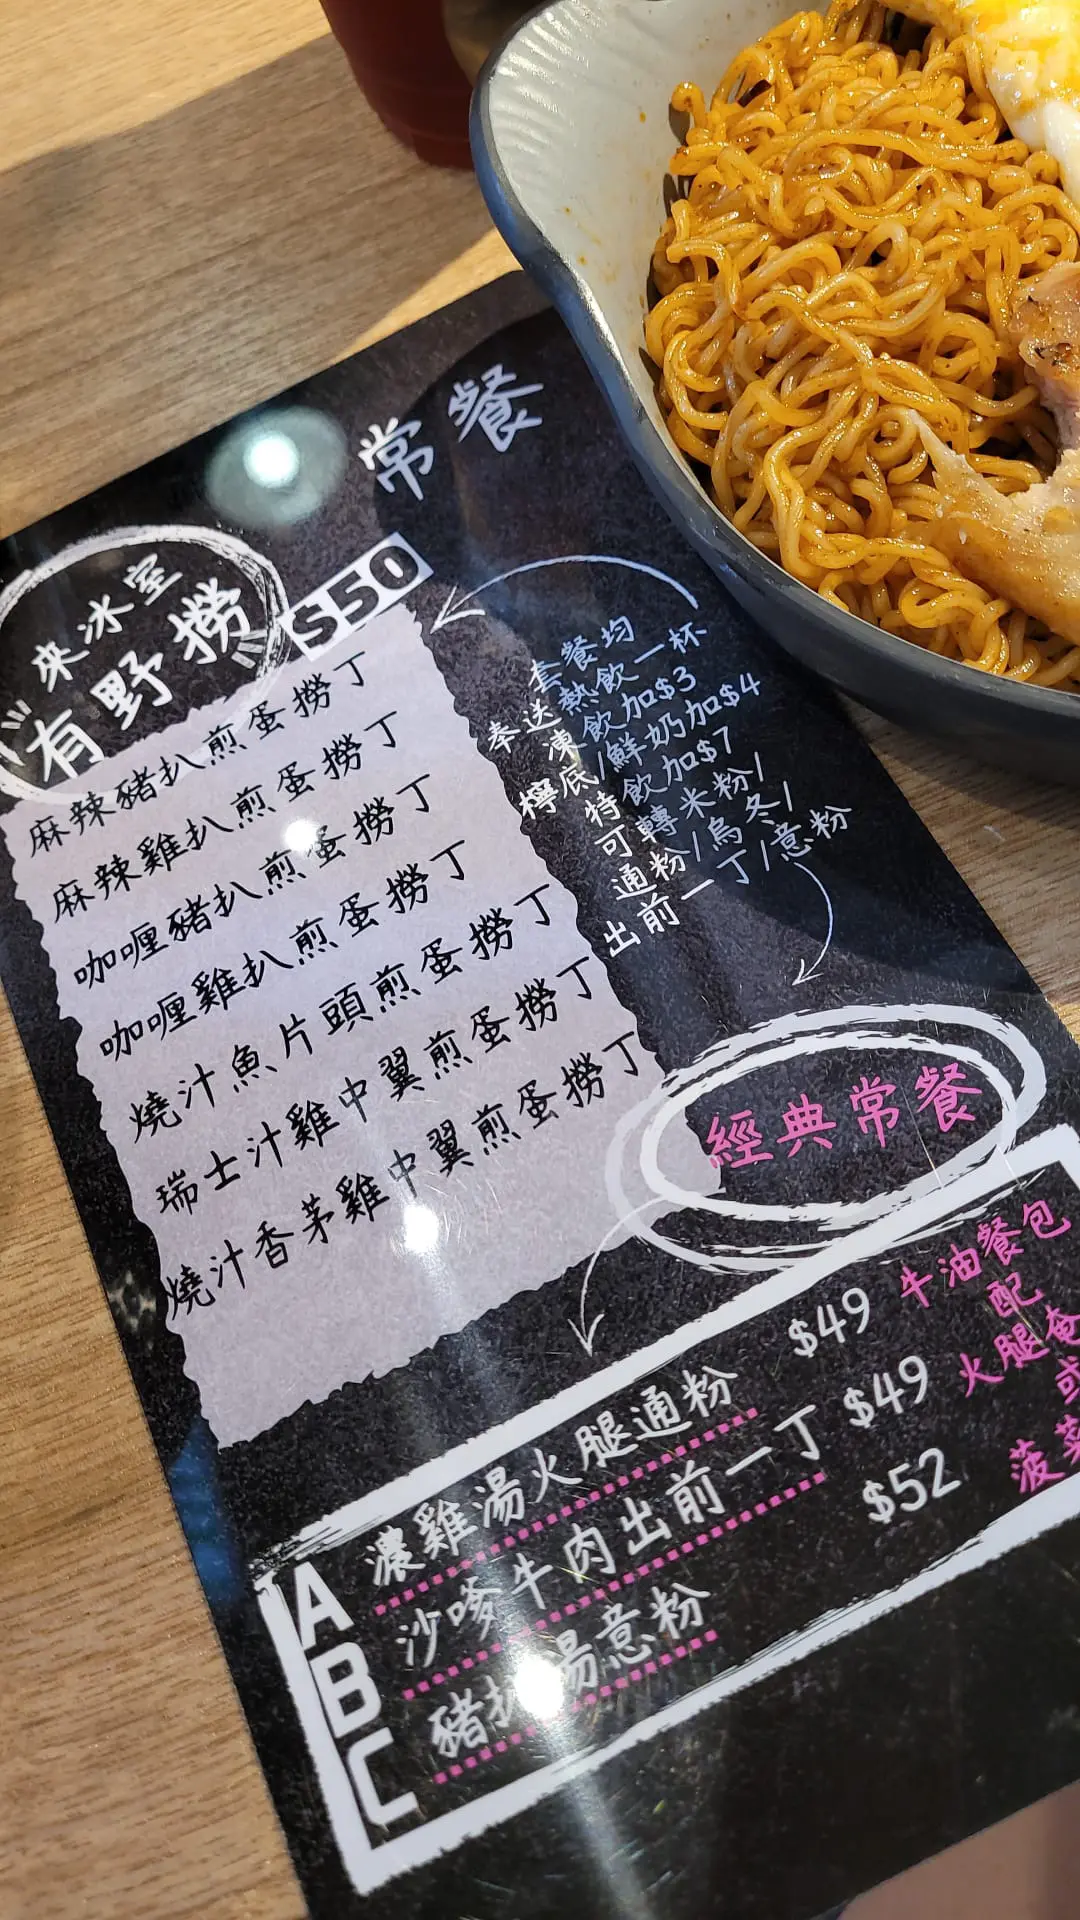 常餐
來冰室
有野撈
$50
麻辣豬扒煎蛋撈丁
麻辣雞扒煎蛋撈丁
咖喱豬扒煎蛋撈丁
咖喱雞扒煎蛋撈丁
燒汁魚片頭煎蛋撈丁
瑞士汁雞中翼煎蛋撈丁
燒汁香茅雞中翼煎蛋撈丁
套餐均
奉送熱飲一杯
凍飲加$3
檸底/鮮奶加$4
特飲加$7
可轉米粉/
通粉/烏冬/
出前一丁/意粉
經典常餐
A 濃雞湯火腿通粉 $49
B 沙嗲牛肉出前一丁 $49
C 豬扒湯意粉 $52
牛油餐包
配
火腿奄
或
菠菜